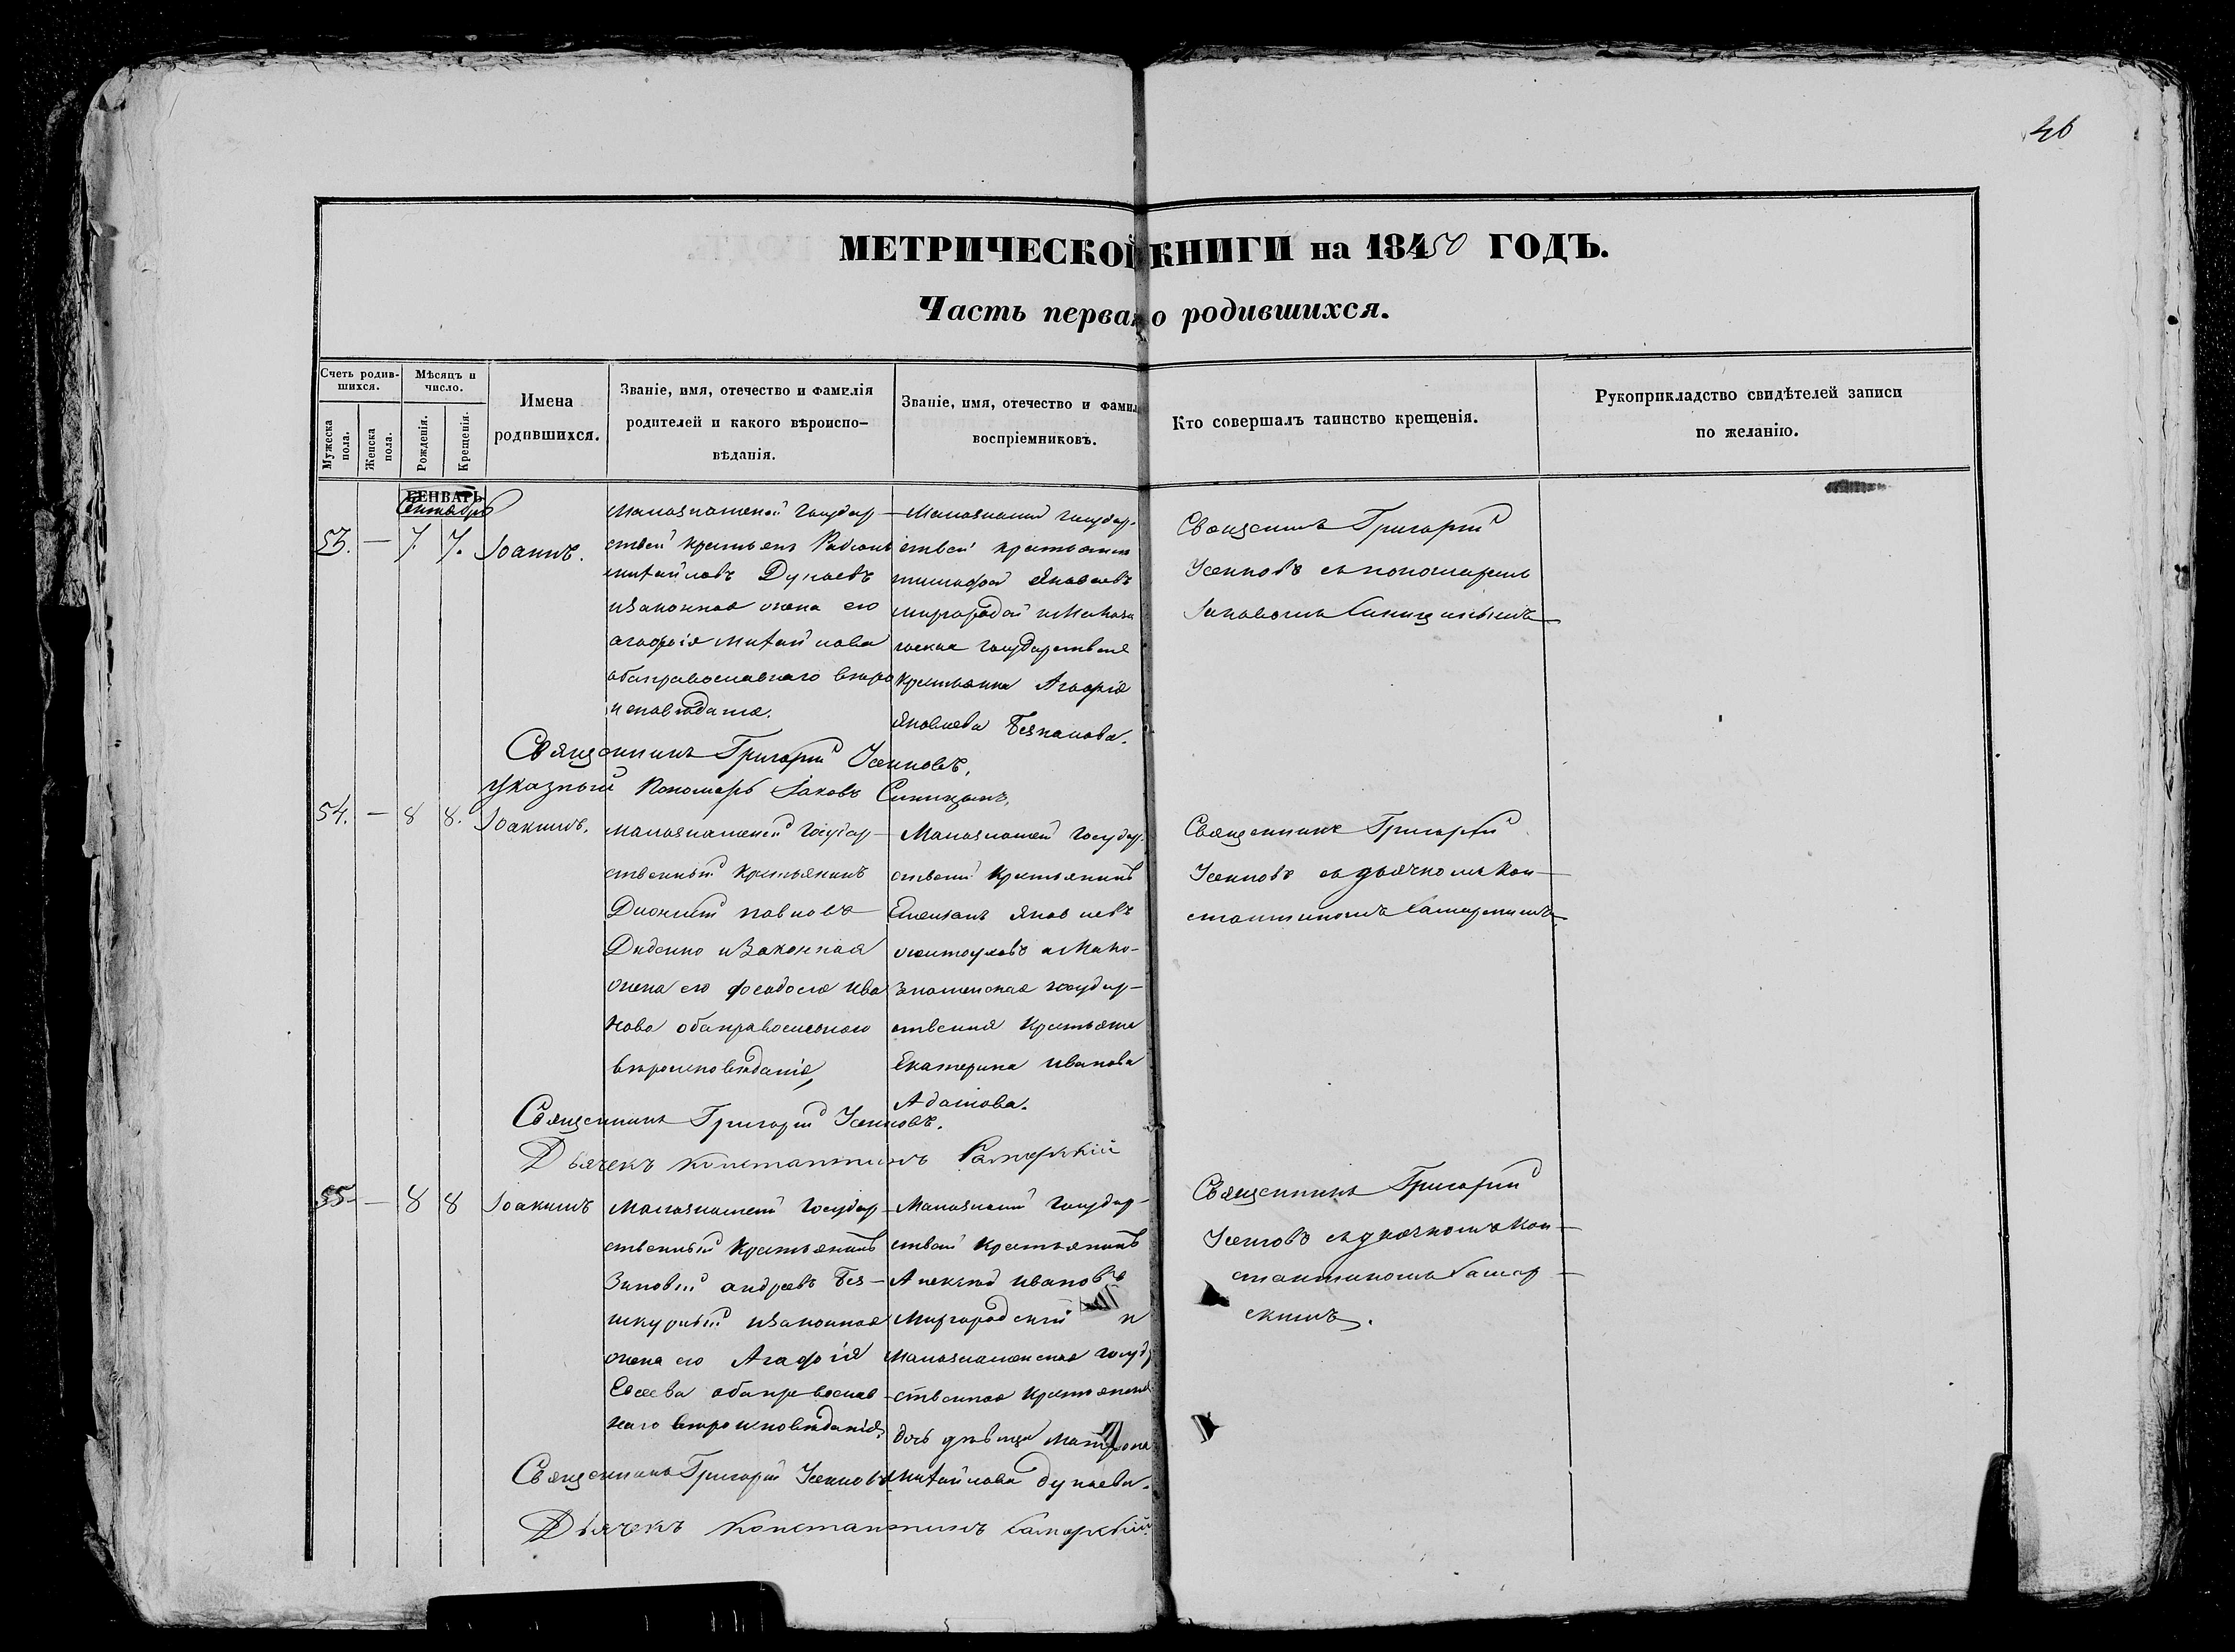 46
МЕТРИЧЕСКОЙ КНИГИ на 18450 ГОДЪ.
Часть первая о родившихся.
Счетъ родив-
шихся.
Мужеска пола.
Женска пола.
Мѣсяцъ и
число.
Рожденія.
Крещенія.
Имена
родившихся.
Званіе, имя, отечество и фамилія
родителей и какого вѣроиспо-
вѣданія.
Званіе, имя, отечество и фамил
воспріемниковъ.
Кто совершалъ таинство крещенія.
Рукоприкладство свидѣтелей записи
по желанію.
ГЕНВАРЬ
Сентябрь
53. — 7. 7. Іоаннъ.
Малознаменской государ-
ствен крестьянъ Родіонъ
михайловъ Дунаевъ
изаконная жена его
агафія михайлова
обаправославнаго вѣро
исповѣданія.
государ-
ствен крестьянинъ
тимофей Яковлевъ
миргородскій
государственая
Крестьянка Агафія
Яковлева Безпалова.
Священникъ Григорій
Усенковъ съ пономаремъ
Іаковомъ Синицынымъ
Священникъ Григорій Усенковъ.
указный Пономарь Іаковъ Синицынъ.
54. — 8 8. Іоакимъ.
малознаменскій Государ-
ственный Крестьянинъ
Діонисій павловъ
Диденко изаконная
жена его феодосія ива
нова обаправославнаго
вѣроисповѣданія,
Малознамен Государ-
ствений Крестьянинъ
Яковлевъ
имало-
знаменская государ-
ственая Крестьянка
Екатерина иванова
Адамова.
Священникъ Григорій
Усенковъ съ дьячкомъ Кон-
стантиномъ Самарскимъ.
Священникъ Григорій Усенковъ.
Дьячекъ Константинъ Самарскій
55. — 8 8 Іоакимъ
Малознамен Государ-
ственный Крестьянинъ
Зиновій андреевъ Без-
шкурный изаконная
жена его Агафія
Евсеева обаправослав-
наго вѣроисповѣданія,
Государ-
ствен Крестьянинъ
Алексѣй ивановъ
Миргородскій и
Малознаменская госуд
ственная Крестьянка
дочь дѣвица Матрона
михайлова дунаева.
Священникъ Григорій
Усенковъ съ дьячкомъ Кон-
стантиномъ Самар-
скимъ.
Священникъ Григорій Усенковъ
Дьячекъ Константинъ Самарскій